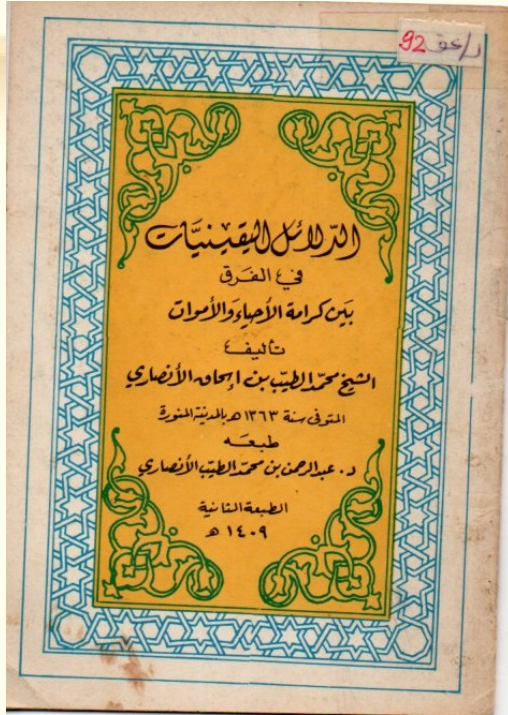 د/عق 92
الدلائل اليقينيات
في الفرق
بين كرامة الأحياء والأموات
تأليف
الشيخ محمد الطيب بن إسحاق الأنصاري
المتوفى سنة ١٣٦٣ هـ بالمدينة المنورة
طبعه
د. عبدالرحمن بن محمد الطيب الأنصاري
الطبعة الثانية
١٤٠٩ هـ